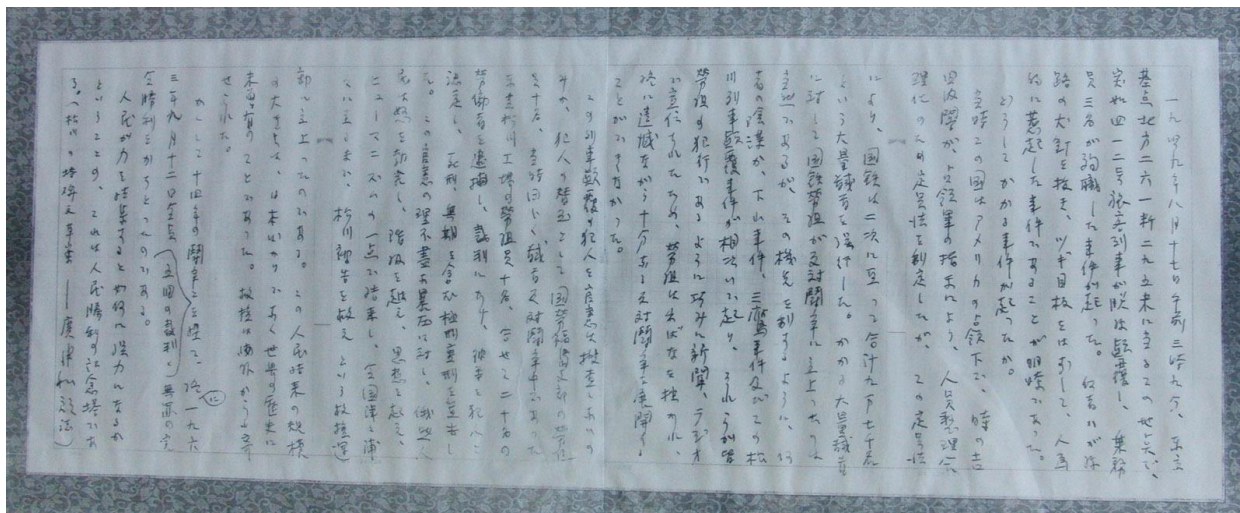 一九四九年八月十七日午前三時九分、東京
基点北方二六一粁二九五米に当るこの地点で、
突如四一二号旅客列車が脱線顛覆し、乗務
員三名が殉職した事件が起った。何者かが線
路の犬釘を抜き、ツギ目板をはずして、人為
的に惹起した事件であることが明瞭であった。
どうしてかかる事件が起ったか。
当時この国はアメリカの占領下で、時の吉
田内閣が、占領軍の指示により、人員整理合
理化のため定員法を制定したが、この定員法
により、国鉄は二次に亙って合計九万七千名
という大量馘首を強行した。かかる大量馘首
に対して国鉄労組が反対闘争に立上ったのは
当然であるが、その機先を制するように、何
者の陰謀か、下山事件、三鷹事件及びこの松
川列車顛覆事件が相次いで起り、それらが皆
労組の犯行であるように巧みに新聞、ラジオ
で宣伝されたため、労組は出ばなを挫かれ、
終に遺憾ながら十分なる反対闘争を展開する
ことができなかった。
この列車顛覆の犯人を官憲は捜査しあぐ
みか、犯人の替玉として、国労福島支部の労組
員十名、当時同じく馘首反対闘争中であった
東芝松川工場の労組員十名、合せて二十名の
労働者を逮捕し、裁判にかけ、彼等を犯人と
認定し、死刑、無期を含む極刑重刑を宣告し
た。この官憲の理不尽な暴圧に対して、俄然人
民は怒りを勃発し、階級を超え、思想を超え、
真実と正義のために
なに立上って、松川被告を救えという救援運
動に立上ったのである。この人民結束の規模
の大きさは、日本ばかりでなく世界の歴史に
未曾有のことであった。救援は海外からも寄
せられた。
かくして十四年の闘争を経て、終に一九六
三年九月十二日全員（五回の裁判で）無罪の完
全勝利をかちとったのである。
人民が力を結集すると如何に強力になるか
ということの、これは人民勝利の記念塔であ
る。（松川の塔碑文草案──広津和郎誌）